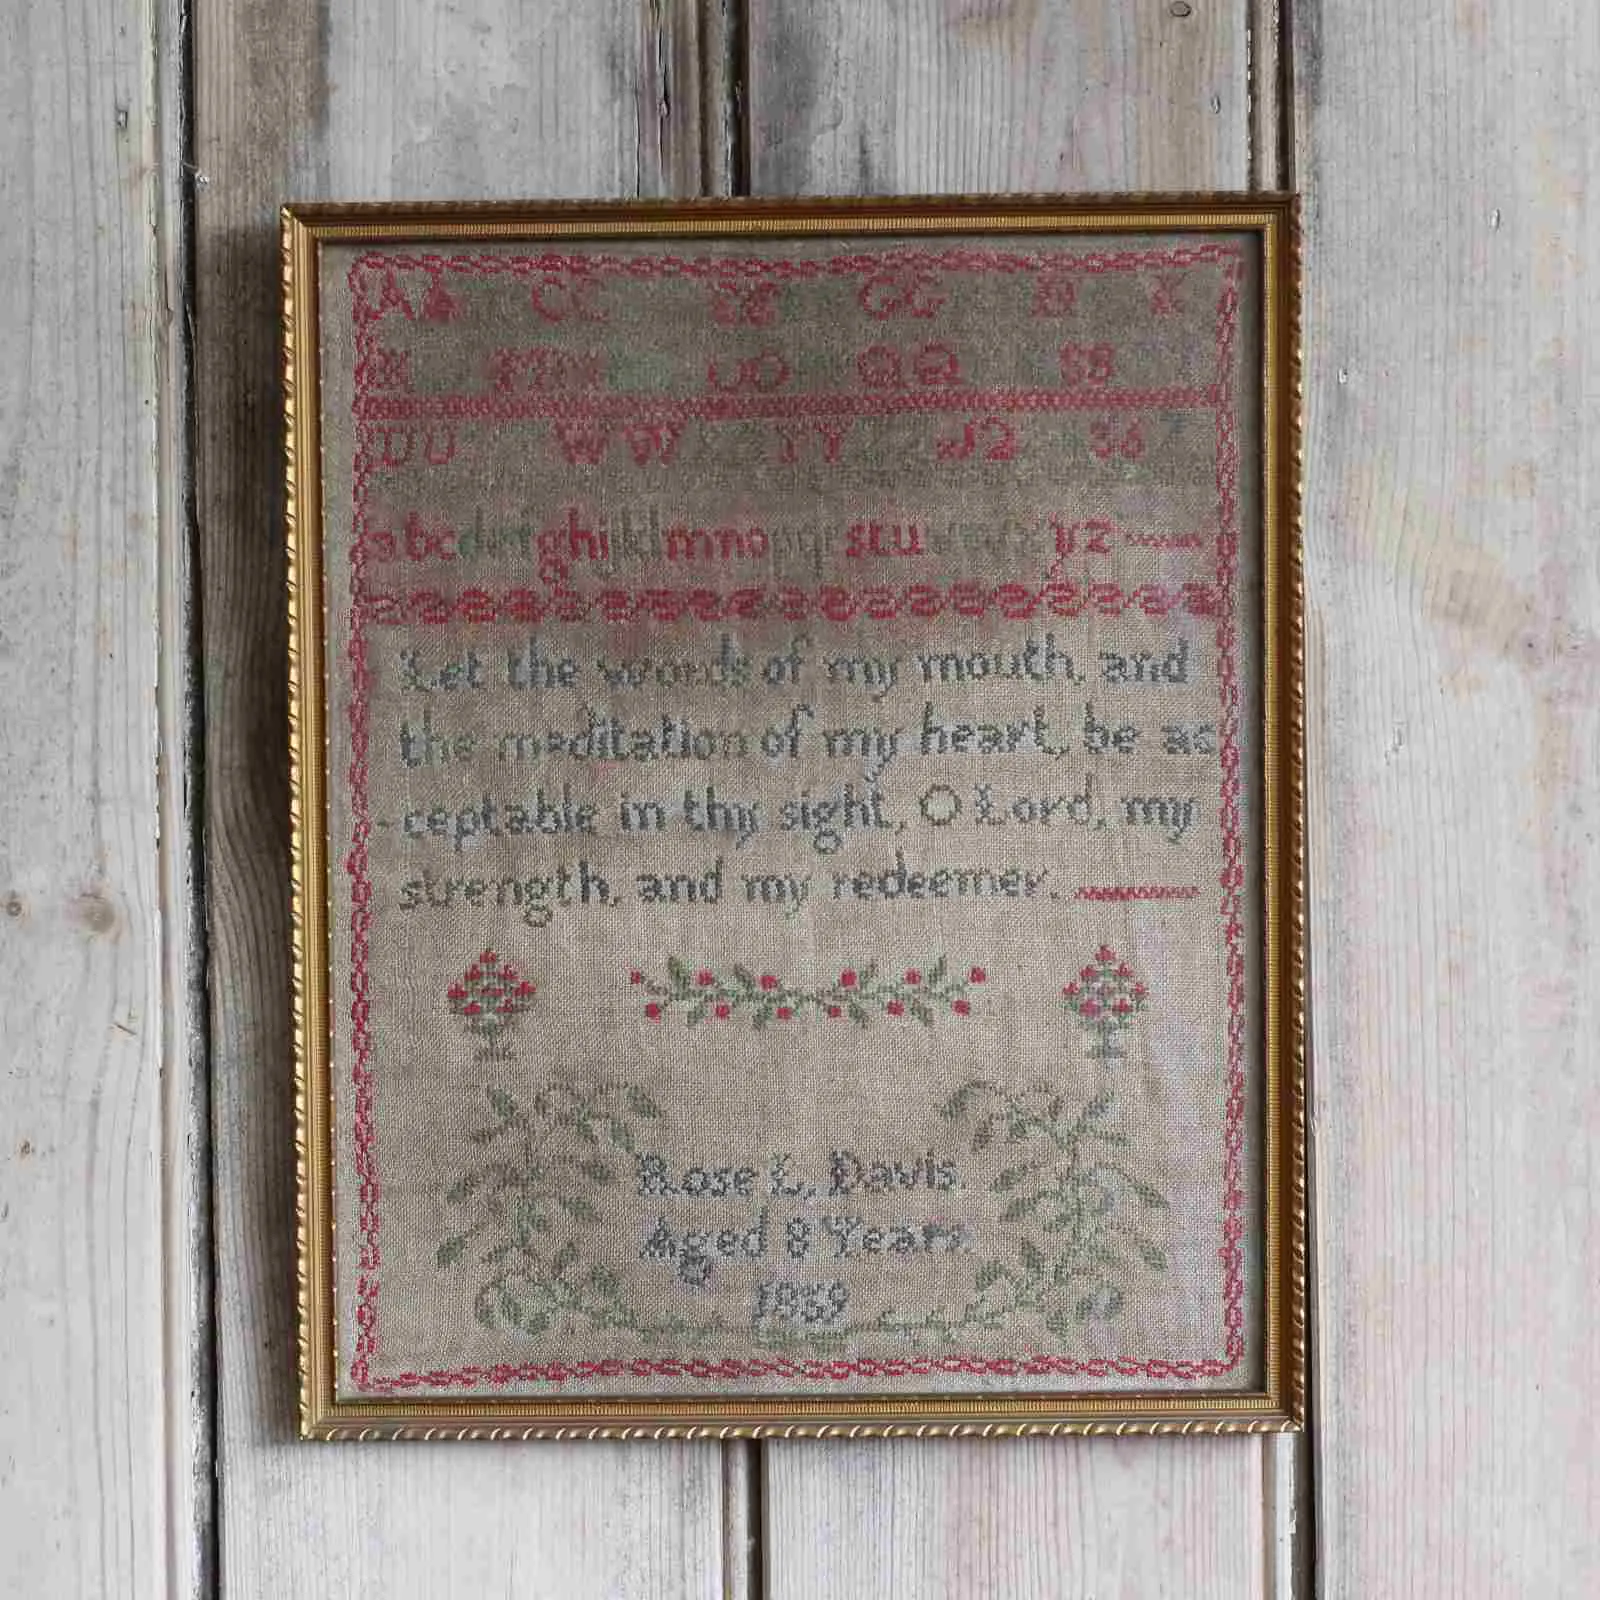 AA CC EE GG
OO QQ SS
UU WW YY
abcdefghijklmnopqrstu yz
Let the words of my mouth, and
the meditation of my heart, be ac
-ceptable in thy sight, O Lord, my
strength, and my redeemer.
Rose L. Davis
Aged 8 Years
1869